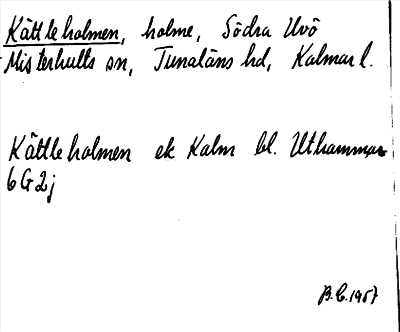 Kättleholmen, holme, Södra Uvö
Misterhults sn, Tunaläns hd, Kalmar l.
Kättleholmen ek Kalm bl. Uthammar
6G2j
B.C. 1957